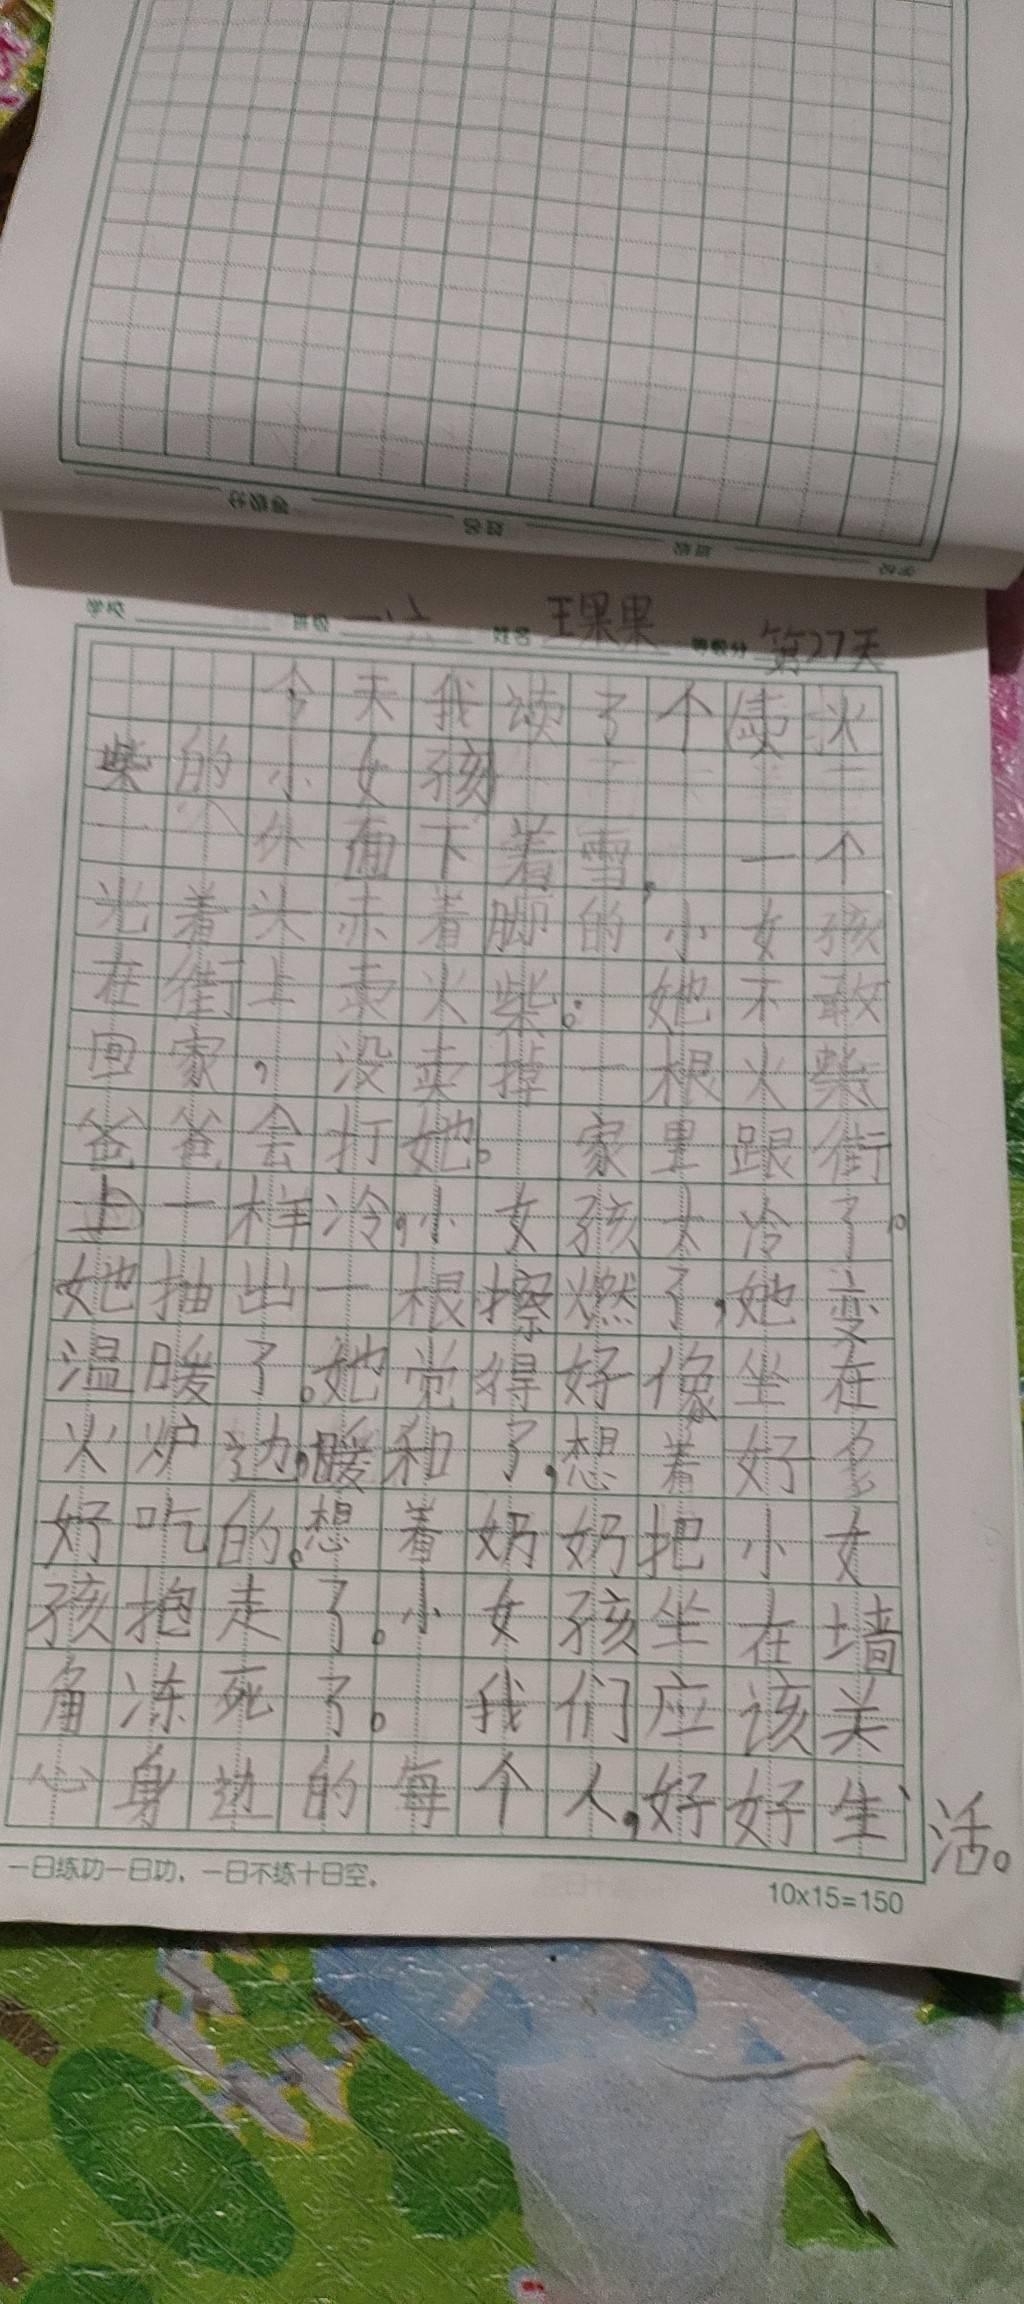 等级分 姓名 班级 学校
学校 班级 姓名 王果果 等级分 第27天
今天我读了个卖火
柴的小女孩
外面下着雪,一个
光着头赤着脚的小女孩
在街上卖火柴。她不敢
回家,没卖掉一根火柴
爸爸会打她。家里跟街
上一样冷,小女孩太冷了。
她抽出一根擦燃了,她变
温暖了。她觉得好像坐在
火炉边,暖和了,想着好多
好吃的。想着奶奶把小女
孩抱走了。小女孩坐在墙
角冻死了。我们应该关
心身边的每个人,好好生活。
一日练功一日功,一日不练十日空。
10x15=150